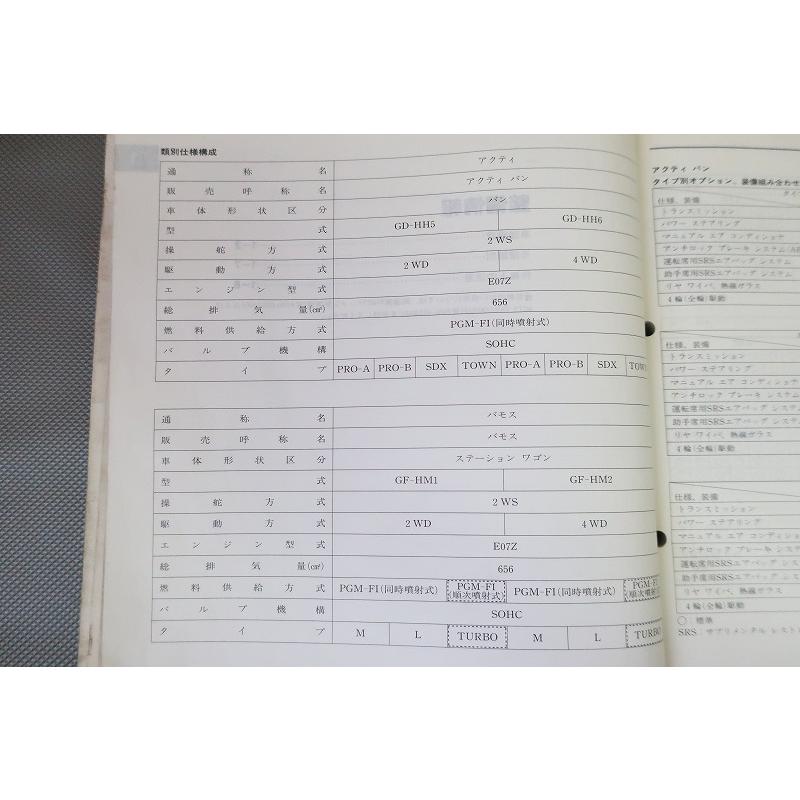 類別仕様構成
通称名 アクティ
販売呼称名 アクティ バン
車体形状区分 バン
型式 GD-HH5 GD-HH6
操舵方式 2WS
駆動方式 2WD 4WD
エンジン型式 E07Z
総排気量(cm³) 656
燃料供給方式 PGM-FI(同時噴射式)
バルブ機構 SOHC
タイプ PRO-A PRO-B SDX TOWN PRO-A PRO-B SDX TOWN
通称名 バモス
販売呼称名 バモス
車体形状区分 ステーション ワゴン
型式 GF-HM1 GF-HM2
操舵方式 2WS
駆動方式 2WD 4WD
エンジン型式 E07Z
総排気量(cm³) 656
燃料供給方式 PGM-FI(同時噴射式) PGM-FI(順次噴射式) PGM-FI(同時噴射式) PGM-FI(順次噴射式)
バルブ機構 SOHC
タイプ M L TURBO M L TURBO
アクティ バン
タイプ別オプション、装備組み合わせ
仕様、装備
トランスミッション
パワー ステアリング
マニュアル エア コンディショナ
アンチロック ブレーキ システム(AB
運転席用SRSエアバッグ システム
助手席用SRSエアバッグ システム
リヤ ワイパ、熱線ガラス
4輪(全輪)駆動
仕様、装備
トランスミッション
パワー ステアリング
マニュアル エア コンディショナ
アンチロック ブレーキ システム
運転席用SRSエアバッグ システム
助手席用SRSエアバッグ システム
リヤ ワイパ、熱線ガラス
4輪(全輪)駆動
仕様、装備
トランスミッション
パワー ステアリング
マニュアル エア コンディショナ
アンチロック ブレーキ システム
運転席用SRSエアバッグ システム
助手席用SRSエアバッグ システム
リヤ ワイパ、熱線ガラス
4輪(全輪)駆動
○：標準
SRS：サプリメンタル レスト